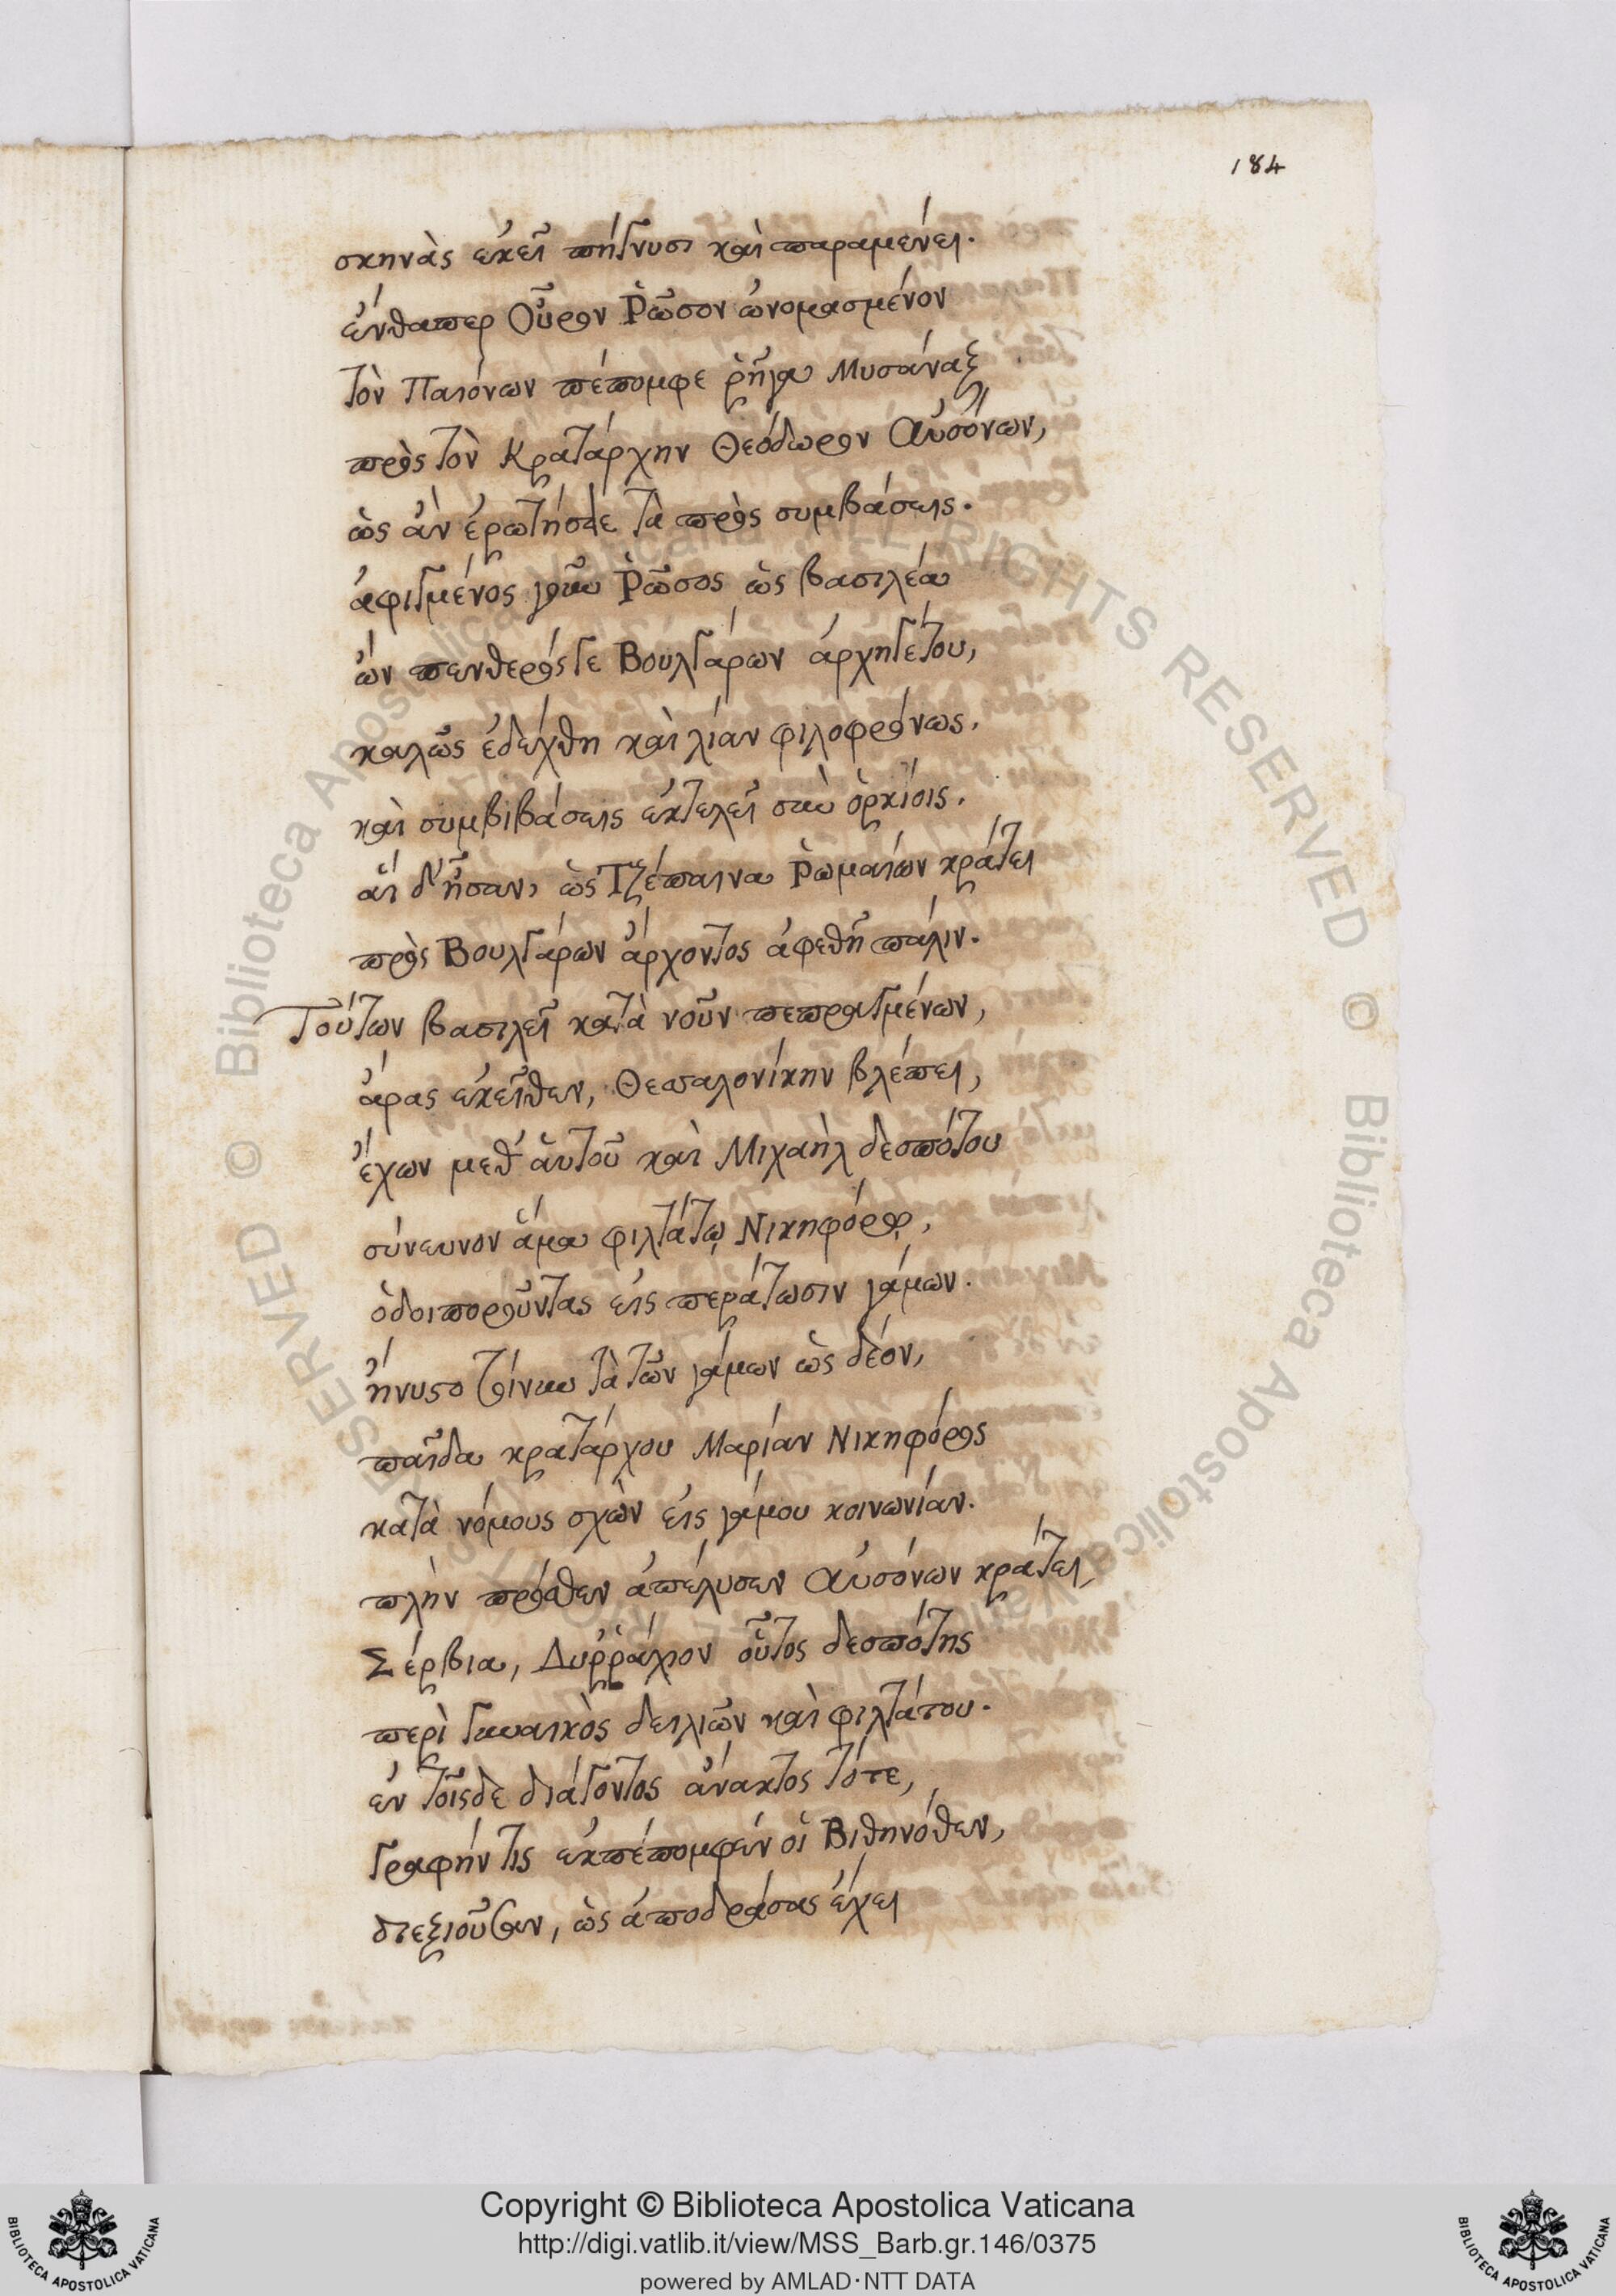 184
σκηνὰς ἐκεῖ πήγνυσι καὶ παραμένει.
ἔνθαπερ Οὖρον Ῥῶσον ὠνομασμένον
τὸν Παιόνων πέπομφε ῥῆγα Μυσάναξ
πρὸς τὸν Κρατάρχην Θεόδωρον Αὐσόνων,
ὡς ἂν ἐρωτήσῃ τὰ πρὸς συμβάσεις.
ἀφιγμένος γοῦν Ῥῶσος ὡς βασιλέα
ὢν πενθερός γε Βουλγάρων ἀρχηγέτου,
καλῶς ἐδέχθη καὶ λίαν φιλοφρόνως.
καὶ συμβιβάσεις ἐκτελεῖ σὺν ὁρκίοις.
αἳ δ' ἦσαν, ὡς Τζέπαινα Ῥωμαίων κράτει
πρὸς Βουλγάρων ἄρχοντος ἀφεθῆ πάλιν.
Τούτων βασιλεῖ κατὰ νοῦν πεπραγμένων,
ἄρας ἐκεῖθεν, Θεσσαλονίκην βλέπει,
ἔχων μεθ' αὑτοῦ καὶ Μιχαὴλ δεσπότου
σύνευνον ἅμα φιλτάτῳ Νικηφόρῳ,
ὁδοιποροῦντας εἰς περάτωσιν γάμων.
ἤνυστο τοίνυν τὰ τῶν γάμων ὡς δέον,
παῖδα κρατάρχου Μαρίαν Νικηφόρος
κατὰ νόμους σχὼν εἰς γάμου κοινωνίαν.
πλὴν πρόσθεν ἀπέλυσεν Αὐσόνων κράτει,
Σέρβια, Δυῤῥάχιον οὗτος δεσπότης
περὶ γυναικὸς δειλιῶν καὶ φιλτάτου.
ἐν τοῖσδε διάγοντος ἄνακτος τότε,
γραφήν τις ἐκπέπομφέν οἱ Βιθηνόθεν,
διεξιοῦσαν, ὡς ἀποδράσας ἔχει
Copyright © Biblioteca Apostolica Vaticana
http://digi.vatlib.it/view/MSS_Barb.gr.146/0375
powered by AMLAD·NTT DATA